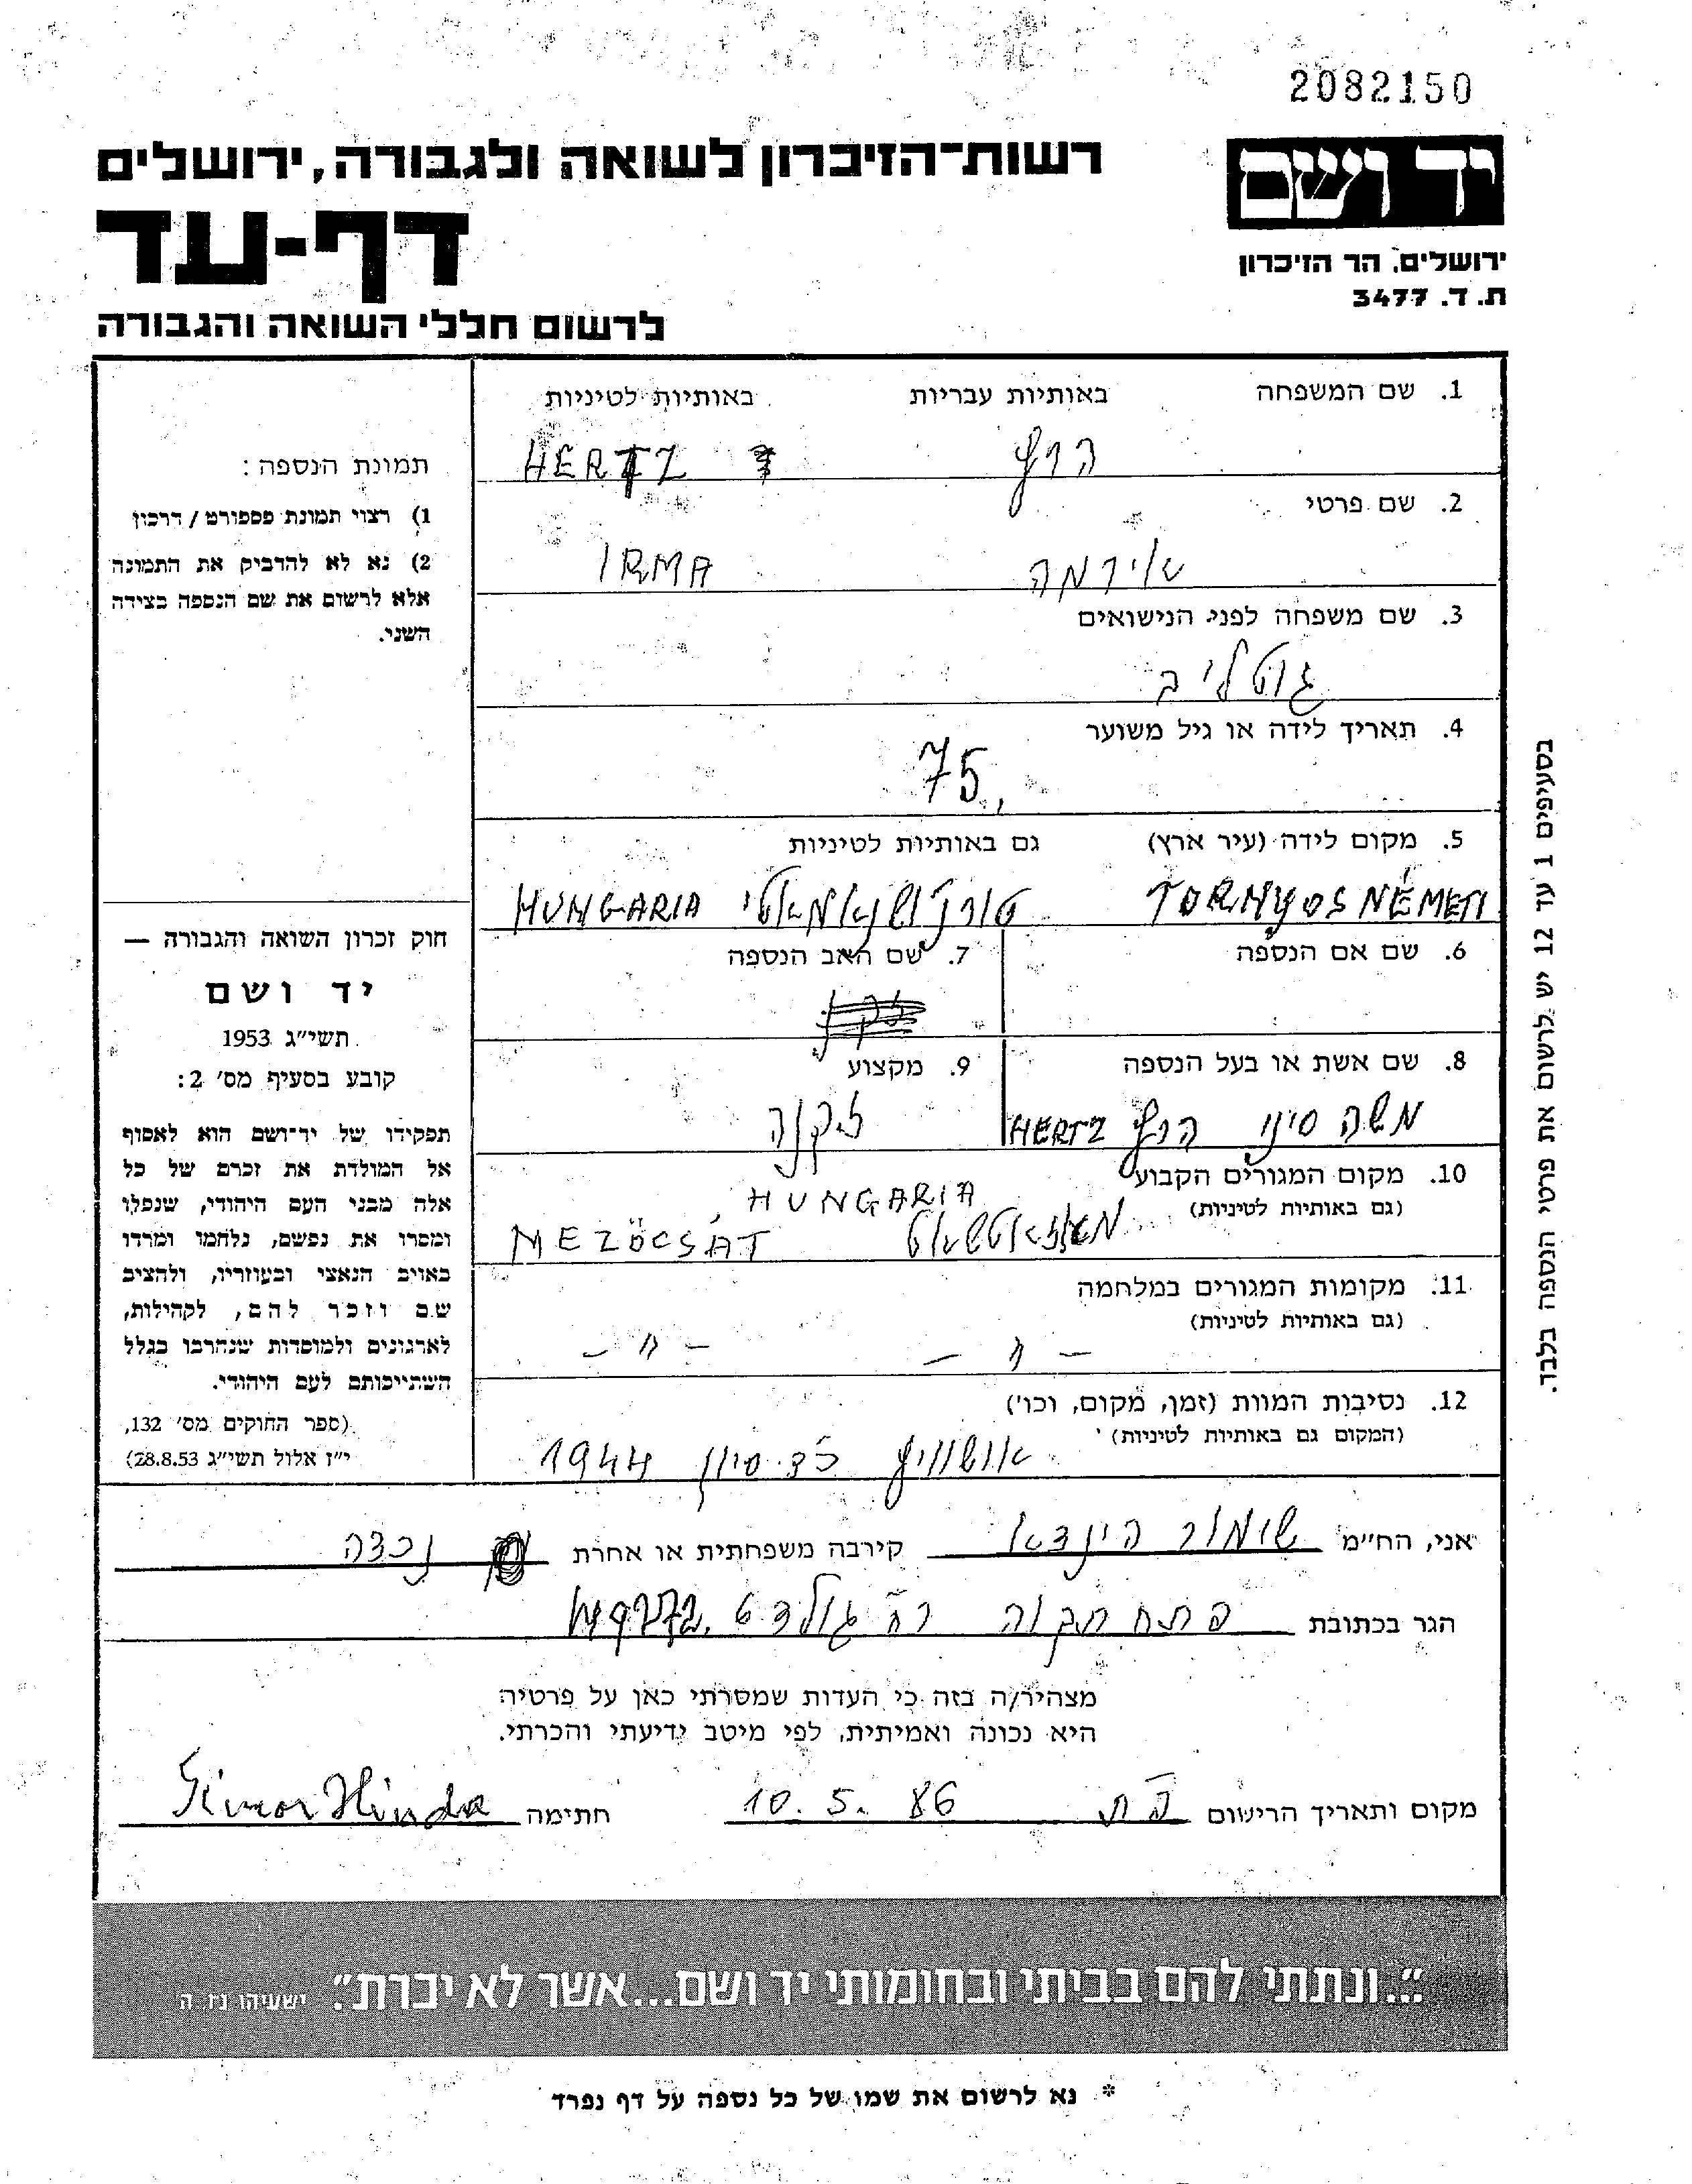 2082150
רשות־הזיכרון לשואה ולגבורה, ירושלים
יד ושם
דף-עד
ירושלים, הר הזיכרון
ת. ד. 3477
לרשום חללי השואה והגבורה
1. שם המשפחה באותיות עבריות באותיות לטיניות
הרץ HERTZ
2. שם פרטי
אירמה IRMA
3. שם משפחה לפני הנישואים
גוטליב
4. תאריך לידה או גיל משוער
75
5. מקום לידה (עיר ארץ) גם באותיות לטיניות
TORNYOSNÉMETI HUNGARIA
6. שם אם הנספה 7. שם האב הנספה
8. שם אשת או בעל הנספה 9. מקצוע
משה סיני הרץ HERTZ זקנה
10. מקום המגורים הקבוע
(גם באותיות לטיניות) HUNGARIA
MEZÖCSÁT
11. מקומות המגורים במלחמה
(גם באותיות לטיניות)
– 〃 – – 〃 –
12. נסיבות המוות (זמן, מקום, וכו')
(המקום גם באותיות לטיניות)
אושוויץ כד סיון 1944
תמונת הנספה:
1) רצוי תמונת פספורט / דרכון
2) נא לא להדביק את התמונה
אלא לרשום את שם הנספה בצידה
השני.
חוק זכרון השואה והגבורה —
יד ושם
תשי״ג 1953
קובע בסעיף מס׳ 2:
תפקידו של יד־ושם הוא לאסוף
אל המולדת את זכרם של כל
אלה מבני העם היהודי, שנפלו
ומסרו את נפשם, נלחמו ומרדו
באויב הנאצי ובעוזריו, ולהציב
שם וזכר להם, לקהילות,
לארגונים ולמוסדות שנחרבו בגלל
השתייכותם לעם היהודי.
(ספר החוקים מס׳ 132,
י״ז אלול תשי״ג 28.8.53)
בסעיפים 1 עד 12 יש לרשום את פרטי הנספה בלבד.
אני, הח״מ שימור הינדא קירבה משפחתית או אחרת נכדה
הגר בכתובת פתח תקוה רח גולדט
מצהיר/ה בזה כי העדות שמסרתי כאן על פרטיה
היא נכונה ואמיתית, לפי מיטב ידיעתי והכרתי.
מקום ותאריך הרישום פ״ת 10. 5. 86 חתימה Simor Hinda
״...ונתתי להם בביתי ובחומותי יד ושם...אשר לא יכרת״. ישעיהו נו, ה
* נא לרשום את שמו של כל נספה על דף נפרד